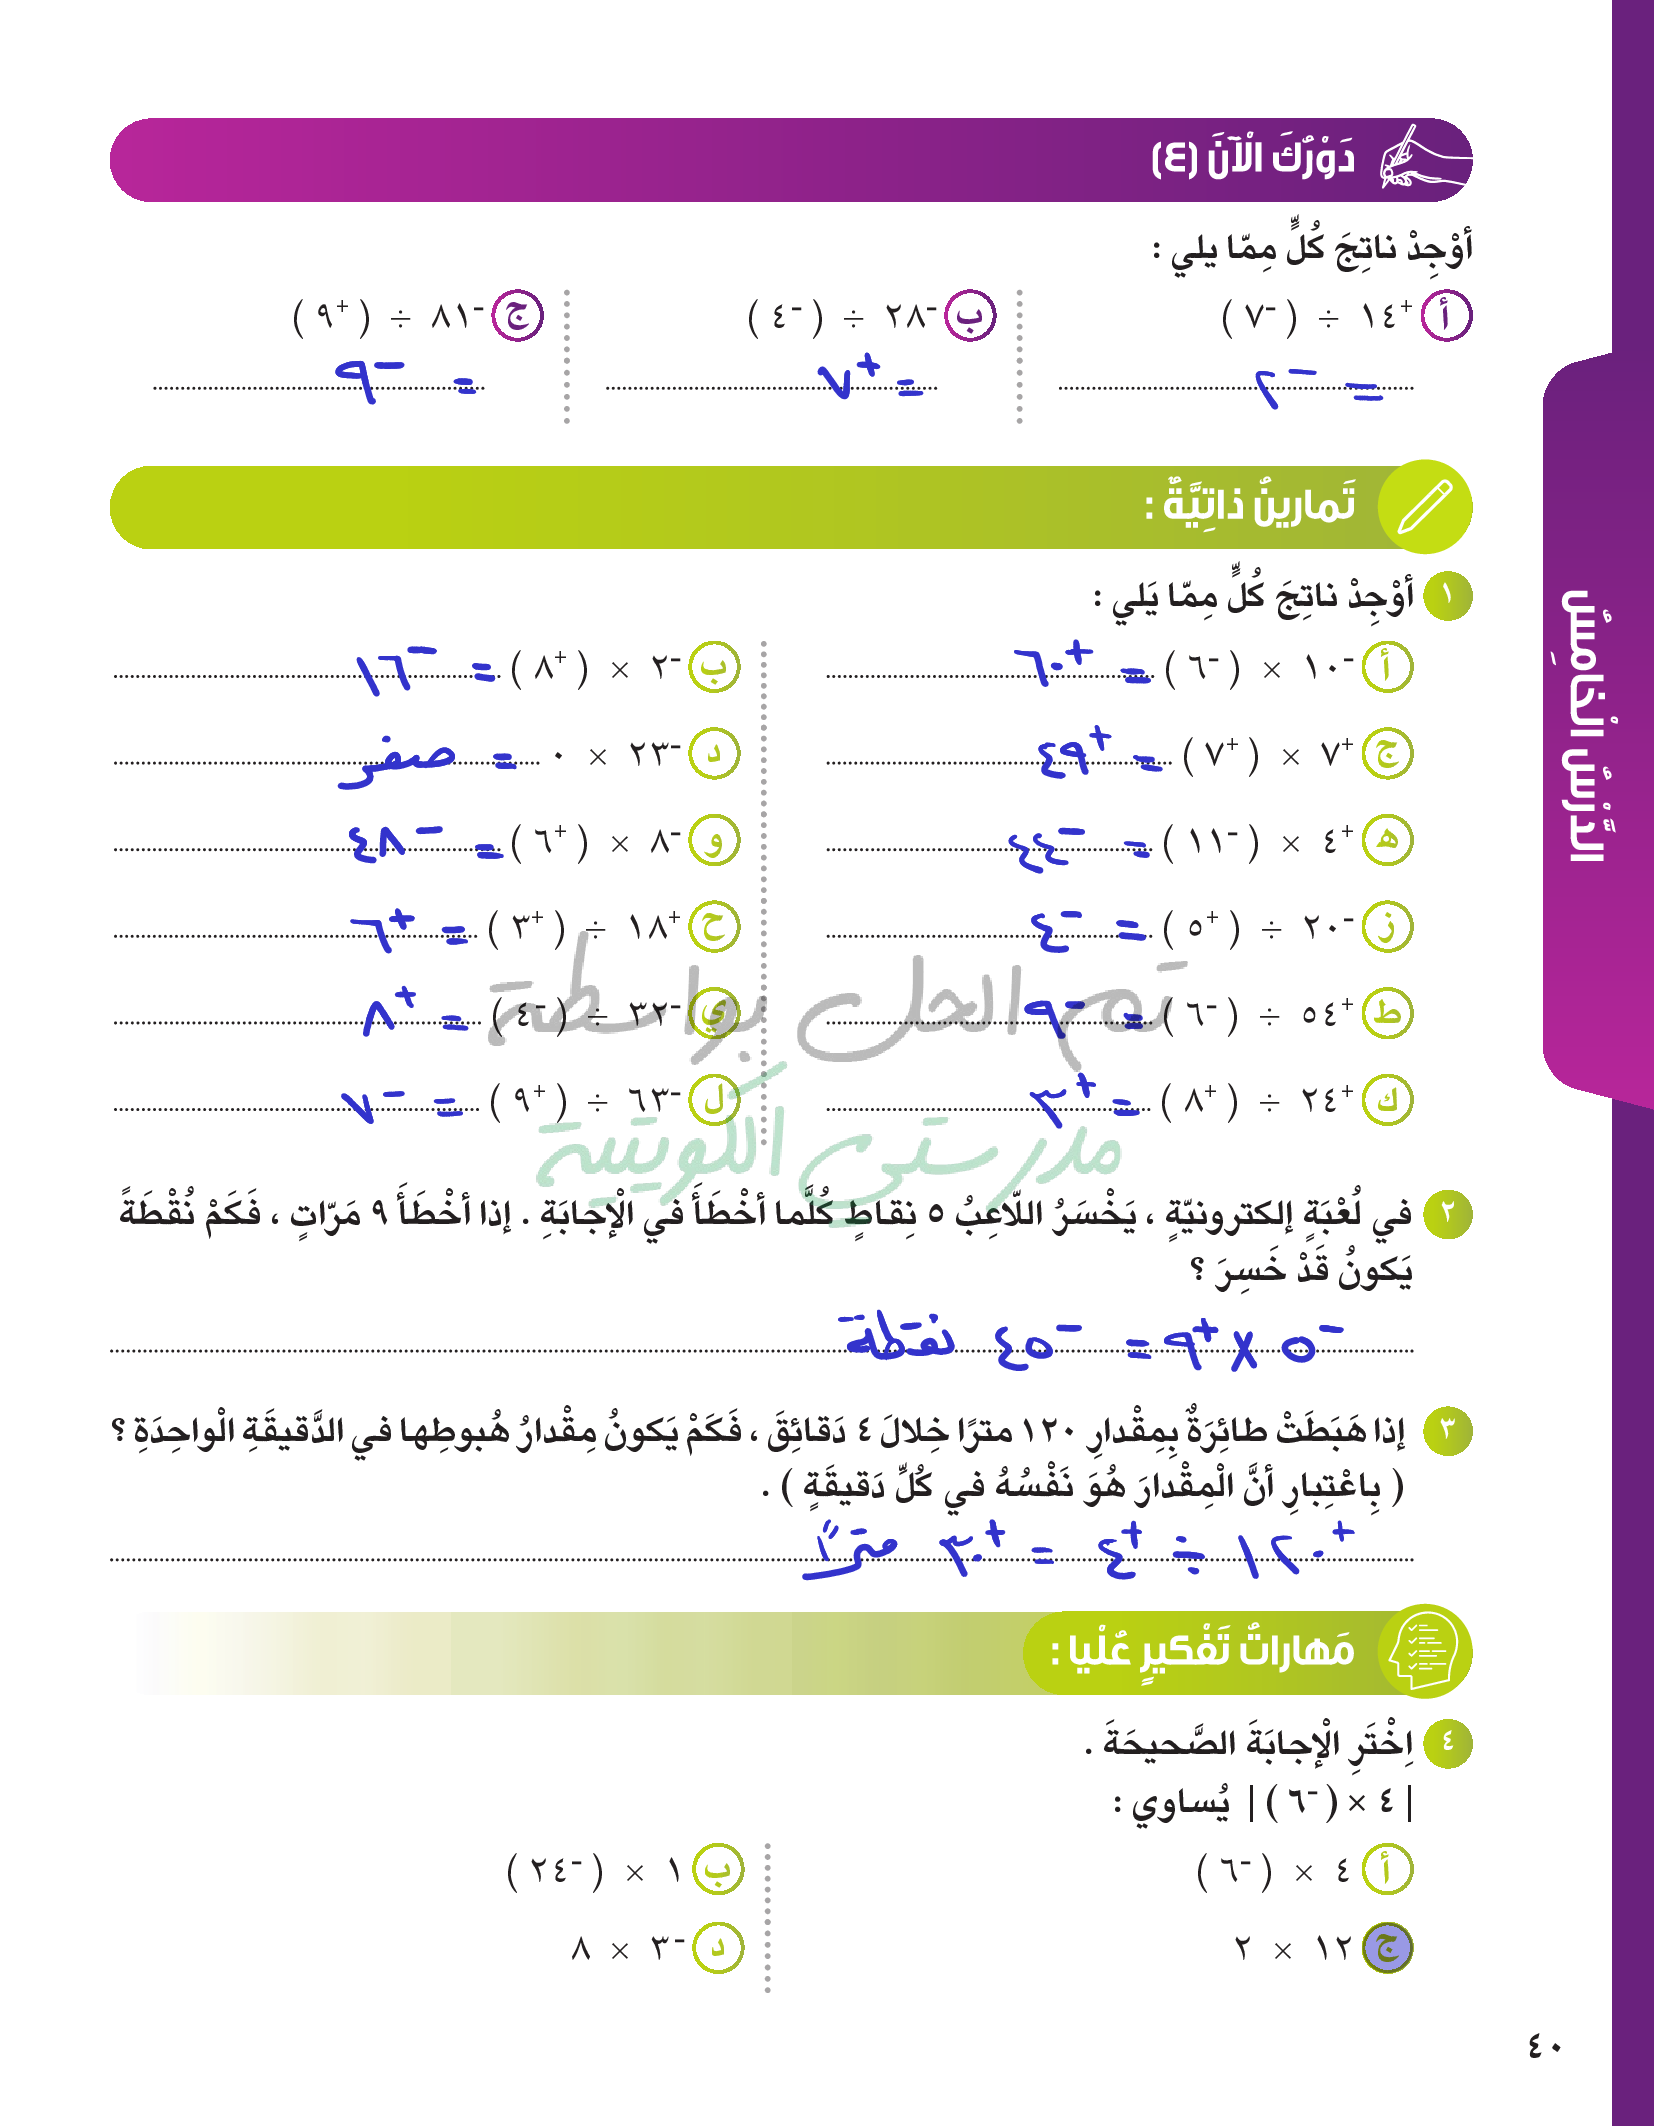 دَوْرُكَ الْآنَ (٤)
أَوْجِدْ ناتِجَ كُلٍّ مِمّا يلي :
أ +١٤ ÷ ( -٧ )
ب -٢٨ ÷ ( -٤ )
ج -٨١ ÷ ( +٩ )
= -٢
= +٧
= -٩
تَمارينُ ذاتِيَّةٌ :
١ أَوْجِدْ ناتِجَ كُلٍّ مِمّا يَلي :
أ -١٠ × ( -٦ ) = +٦٠
ب -٢ × ( +٨ ) = -١٦
ج +٧ × ( +٧ ) = +٤٩
د -٢٣ × ٠ = صفر
ه +٤ × ( -١١ ) = -٤٤
و -٨ × ( +٦ ) = -٤٨
ز -٢٠ ÷ ( +٥ ) = -٤
ح +١٨ ÷ ( +٣ ) = +٦
ط +٥٤ ÷ ( -٦ ) = -٩
ي -٣٢ ÷ ( -٤ ) = +٨
ك +٢٤ ÷ ( +٨ ) = +٣
ل -٦٣ ÷ ( +٩ ) = -٧
تم الحل بواسطة
مدرستي الكويتية
٢ في لُعْبَةٍ إلكترونيّةٍ ، يَخْسَرُ اللّاعِبُ ٥ نِقاطٍ كُلَّما أخْطَأَ في الْإجابَةِ . إذا أخْطَأَ ٩ مَرّاتٍ ، فَكَمْ نُقْطَةً
يَكونُ قَدْ خَسِرَ ؟
-٥ × +٩ = -٤٥ نقطة
٣ إذا هَبَطَتْ طائِرَةٌ بِمِقْدارِ ١٢٠ مترًا خِلالَ ٤ دَقائِقَ ، فَكَمْ يَكونُ مِقْدارُ هُبوطِها في الدَّقيقَةِ الْواحِدَةِ ؟
( بِاعْتِبارِ أنَّ الْمِقْدارَ هُوَ نَفْسُهُ في كُلِّ دَقيقَةٍ ) .
+١٢٠ ÷ +٤ = +٣٠ مترًا
مَهاراتُ تَفْكيرٍ عُلْيا :
٤ اِخْتَرِ الْإجابَةَ الصَّحيحَةَ .
| ٤ × ( -٦ ) | يُساوي :
أ ٤ × ( -٦ )
ب ١ × ( -٢٤ )
ج ١٢ × ٢
د -٣ × ٨
الدَّرْسُ الْخامِسُ
٤٠